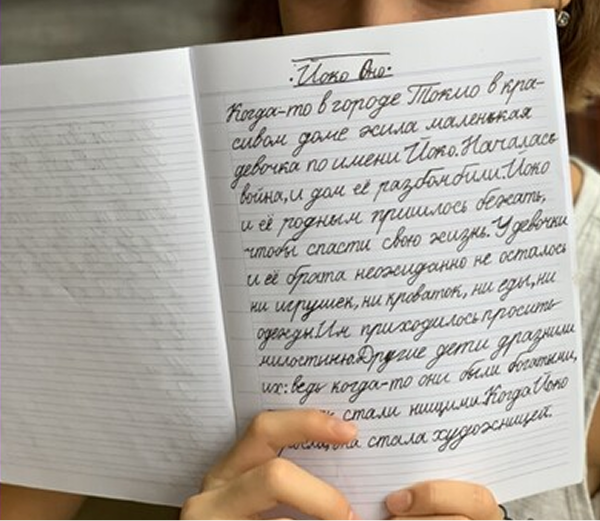 Йоко Оно:
Когда-то в городе Токио в кра-
сивом доме жила маленькая
девочка по имени Йоко. Началась
война, и дом её разбомбили. Йоко
и её родным пришлось бежать,
чтобы спасти свою жизнь. У девочки
и её брата неожиданно не осталось
ни игрушек, ни кроваток, ни еды, ни
одежды. Им приходилось просить
милостиню. Другие дети дразнили
их: ведь когда-то они были богатыми,
стали нищими. Когда Йоко
она стала художницей.